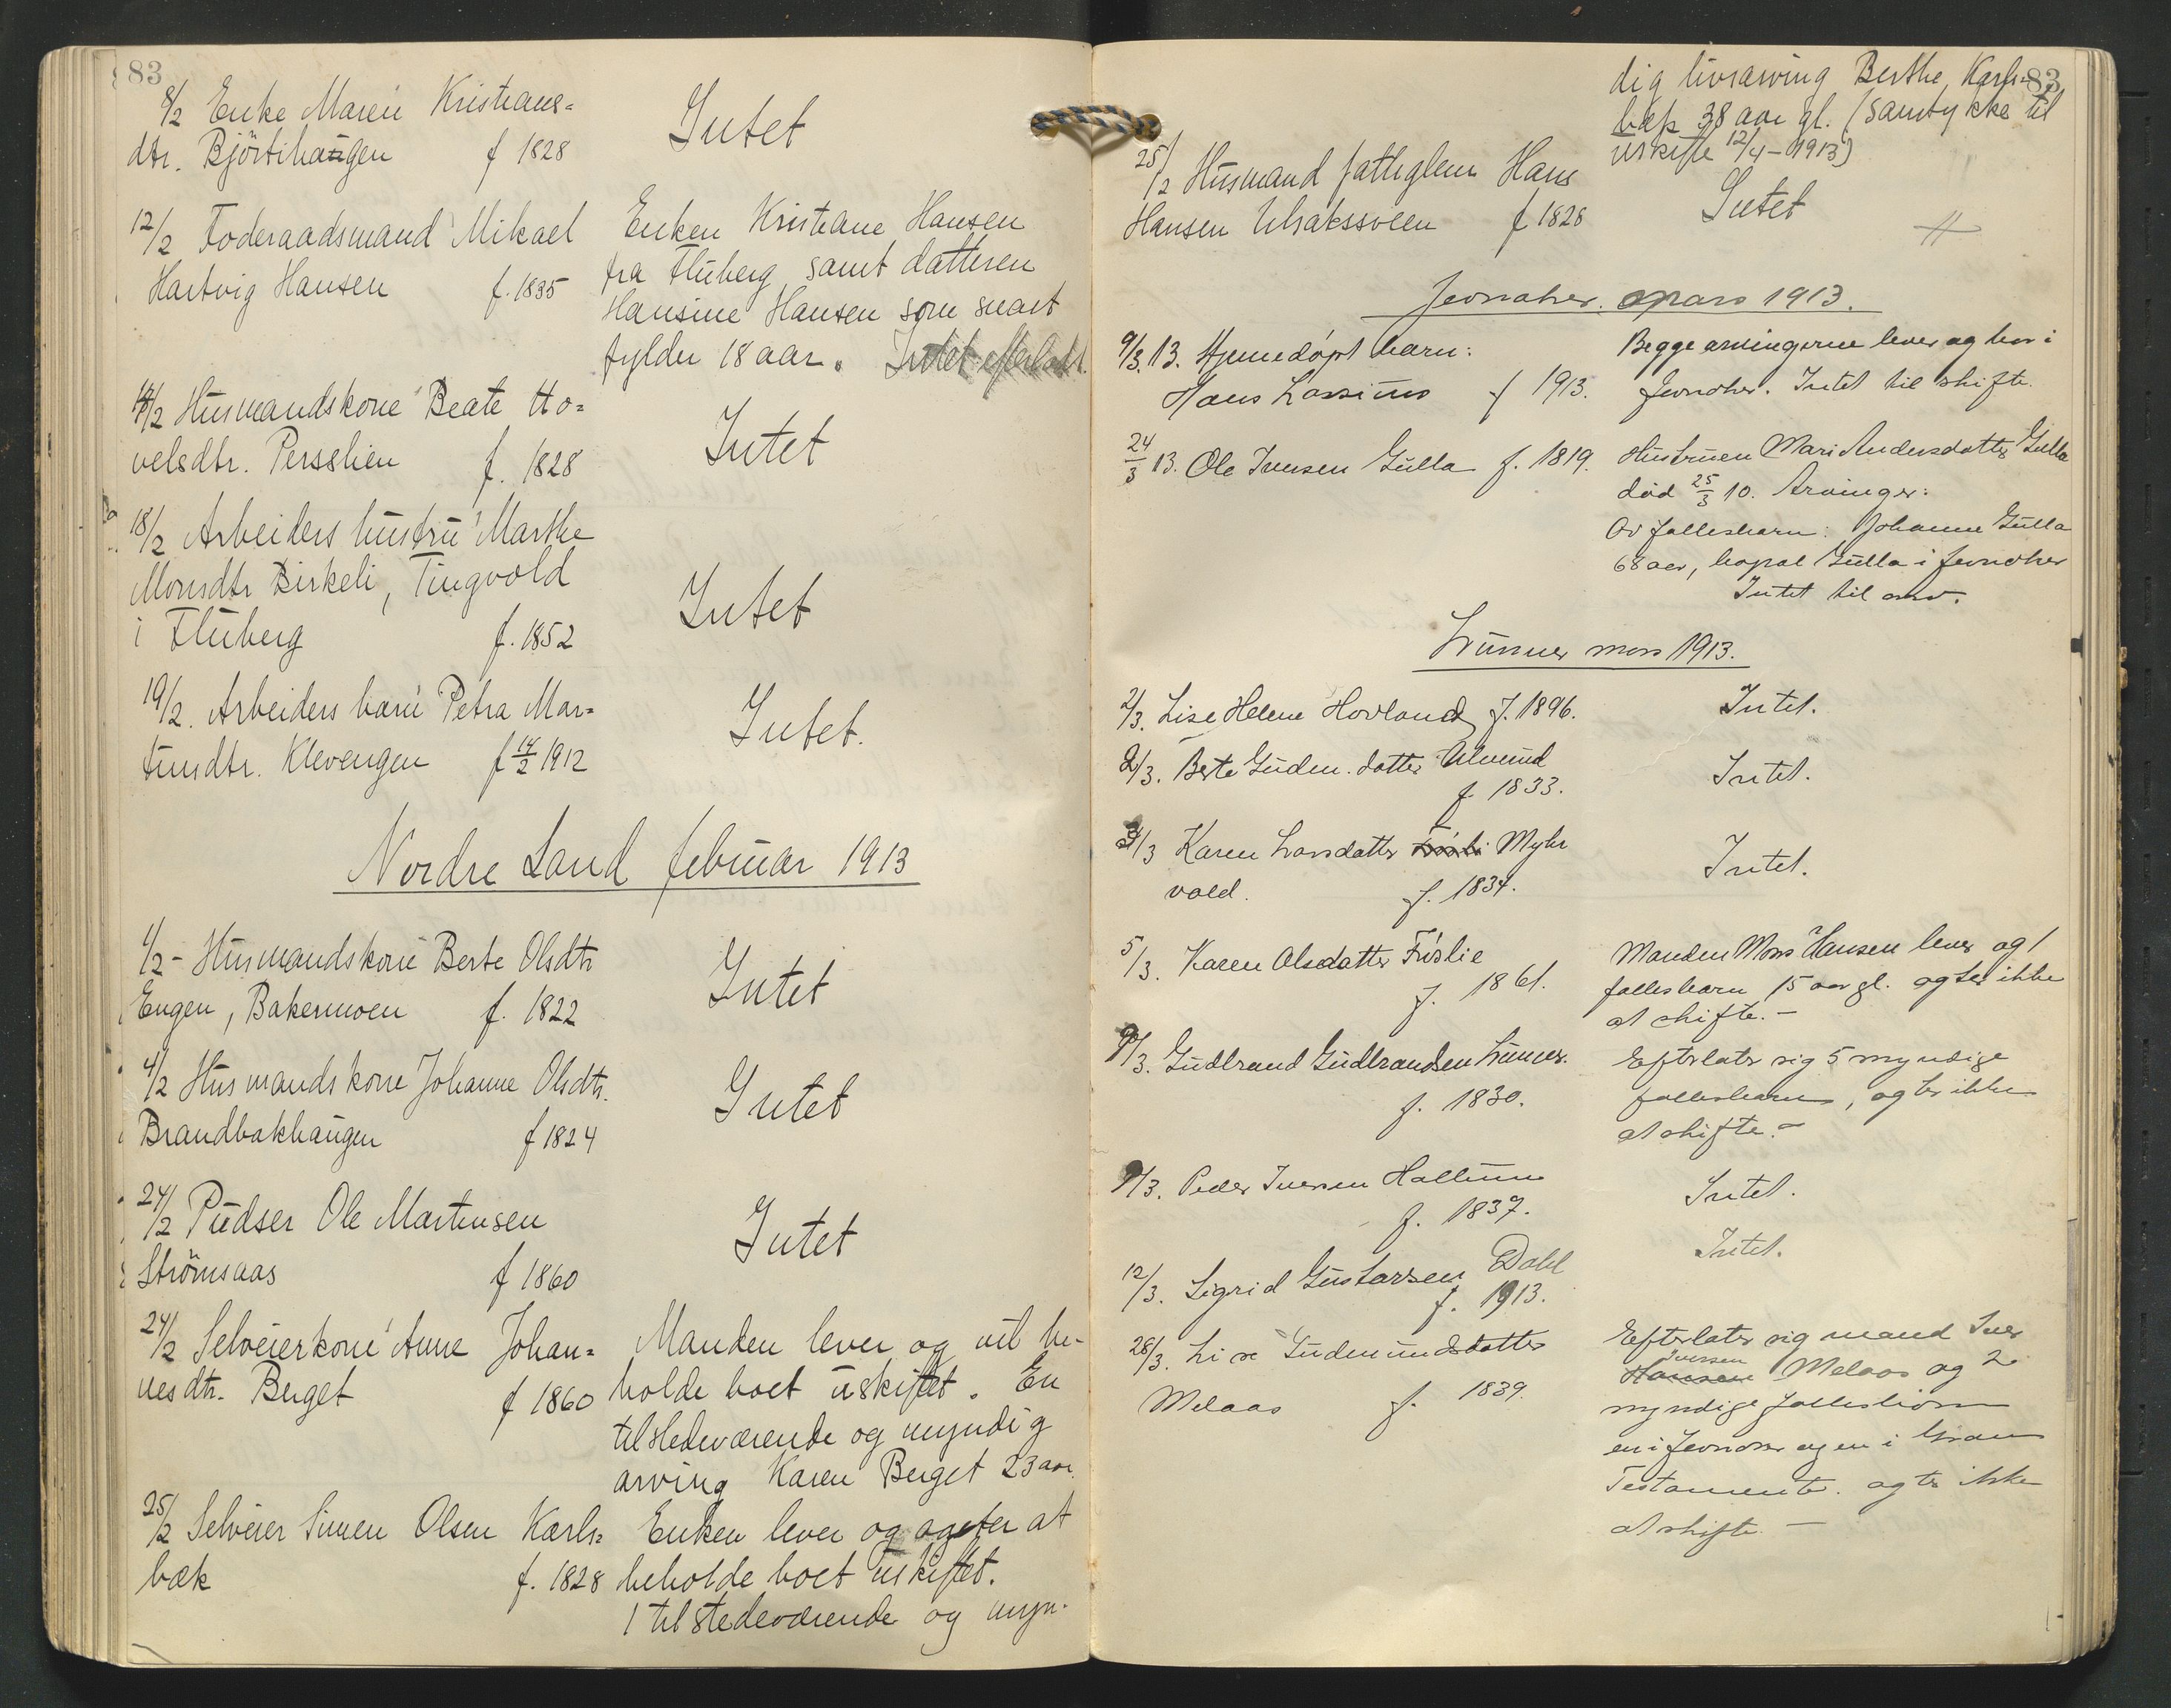 83
8/2 Enke Maren Kristians=
dtr. Björtihaugen f 1828
Intet
12/2 Foderaadsmand Mikael
Hartvig Hansen f. 1835
Enken Kristiane Hansen
fra Fluberg samt datteren
Hansine Hansen som snart
fylder 18 aar. Intet efterladt.
14/2 Husmandskone Beate Ho=
velsdtr. Persslien f. 1828
Intet
18/2 Arbeiders hustru Marthe
Monsdtr Birkeli, Tingvold
i Fluberg f. 1852
Intet
19/2. Arbeiders barn Petra Mar=
tinsdtr. Klevengen f 14/2 1912
Intet.
Nordre Land februar 1913
1/2 - Husmandskone Berte Olsdtr
Engen, Bakermoen f. 1822
Intet
4/2 Husmandskone Johanne Olsdtr.
Brandbakhaugen f 1824
Intet
24/2 Pudser Ole Martinsen
Strömsaas f 1860
Intet
24/2 Selveierkone Anne Johan=
nesdtr. Berget f 1860
Manden lever og vil be-
holde boet uskiftet. En
tilstedeværende og myndig
arving Karen Berget 23 aar.
25/2 Selveier Simen Olsen Karls=
bæk f. 1828
Enken lever og agter at
beholde boet uskiftet.
1 tilstedeværende og myn-
83
dig livsarving Berthe Karls-
bæk 38 aar gl. (samtykke til
uskifte 12/4 - 1913)
25/2 Husmand fattiglem Hans
Hansen Ulsakssveen f 1828
Intet
Jevnaker. mars 1913.
9/3. 13. Hjemmedøpt barn:
Hans Lassinus f 1913.
Begge arvingerne lever og bor i
Jevnaker. Intet til skifte.
24/3 13. Ole Iversen Gulla f. 1819.
Hustruen Mari Andersdatter Gulla
død 25/3 10. Arvinger:
Av fællesbarn: Johanne Gulla
68 aar, bopæl Gulla i Jevnaker
Intet til arv.
Lunner mars 1913.
2/3. Lise Helene Hovland f. 1896.
Intet.
2/3. Berte Gudm. datter Almind
f. 1833.
Intet.
3/3 Karen Larsdatter Myhr
vold. f. 1834.
Intet.
5/3. Karen Olsdatter Fúslie
f. 1861.
Manden Mons Hansen lever og 1
fællesbarn 15 aar gl. agter ikke
at skifte. -
9/3. Gudbrand Gudbrandsen Lunner.
f. 1830.
Efterlater sig 5 myndige
fællesbarn, agter ikke
at skifte. -
9/3. Peder Iversen Hallum
f. 1837.
Intet.
12/3. Sigrid Gustavsen Dahl
f. 1913.
Intet.
28/3. Lise Gudmundsdatter
Melaas f. 1839.
Efterlater sig mand Iver
Iversen
Hansen Melaas og 2
myndige fællesbörn
en i Jevnaker og en i Gran
Testamente. agter ikke
at skifte. -